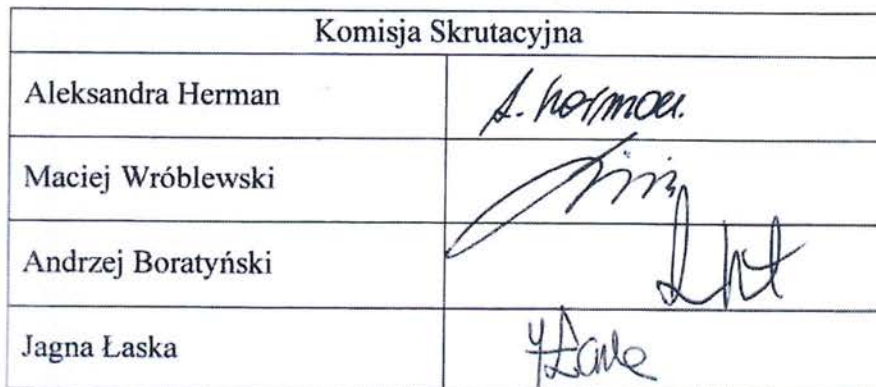 Komisja Skrutacyjna
Aleksandra Herman
A. Herman
Maciej Wróblewski
Andrzej Boratyński
Jagna Łaska